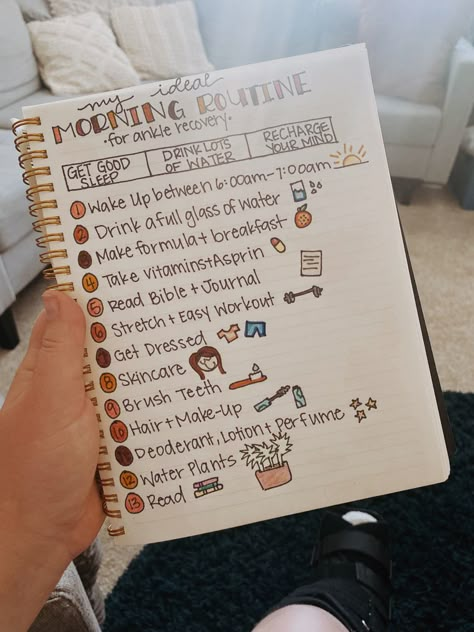 my ideal
MORNING ROUTINE
•for ankle recovery•
GET GOOD SLEEP
DRINK LOTS OF WATER
RECHARGE YOUR MIND
1 Wake Up between 6:00am-7:00am
2 Drink a full glass of water
3 Make formula + breakfast
4 Take vitamins + Asprin
5 Read Bible + Journal
6 Stretch + Easy Workout
7 Get Dressed
8 Skincare
9 Brush Teeth
10 Hair + Make-Up
11 Deoderant, Lotion + Perfume
12 Water Plants
13 Read